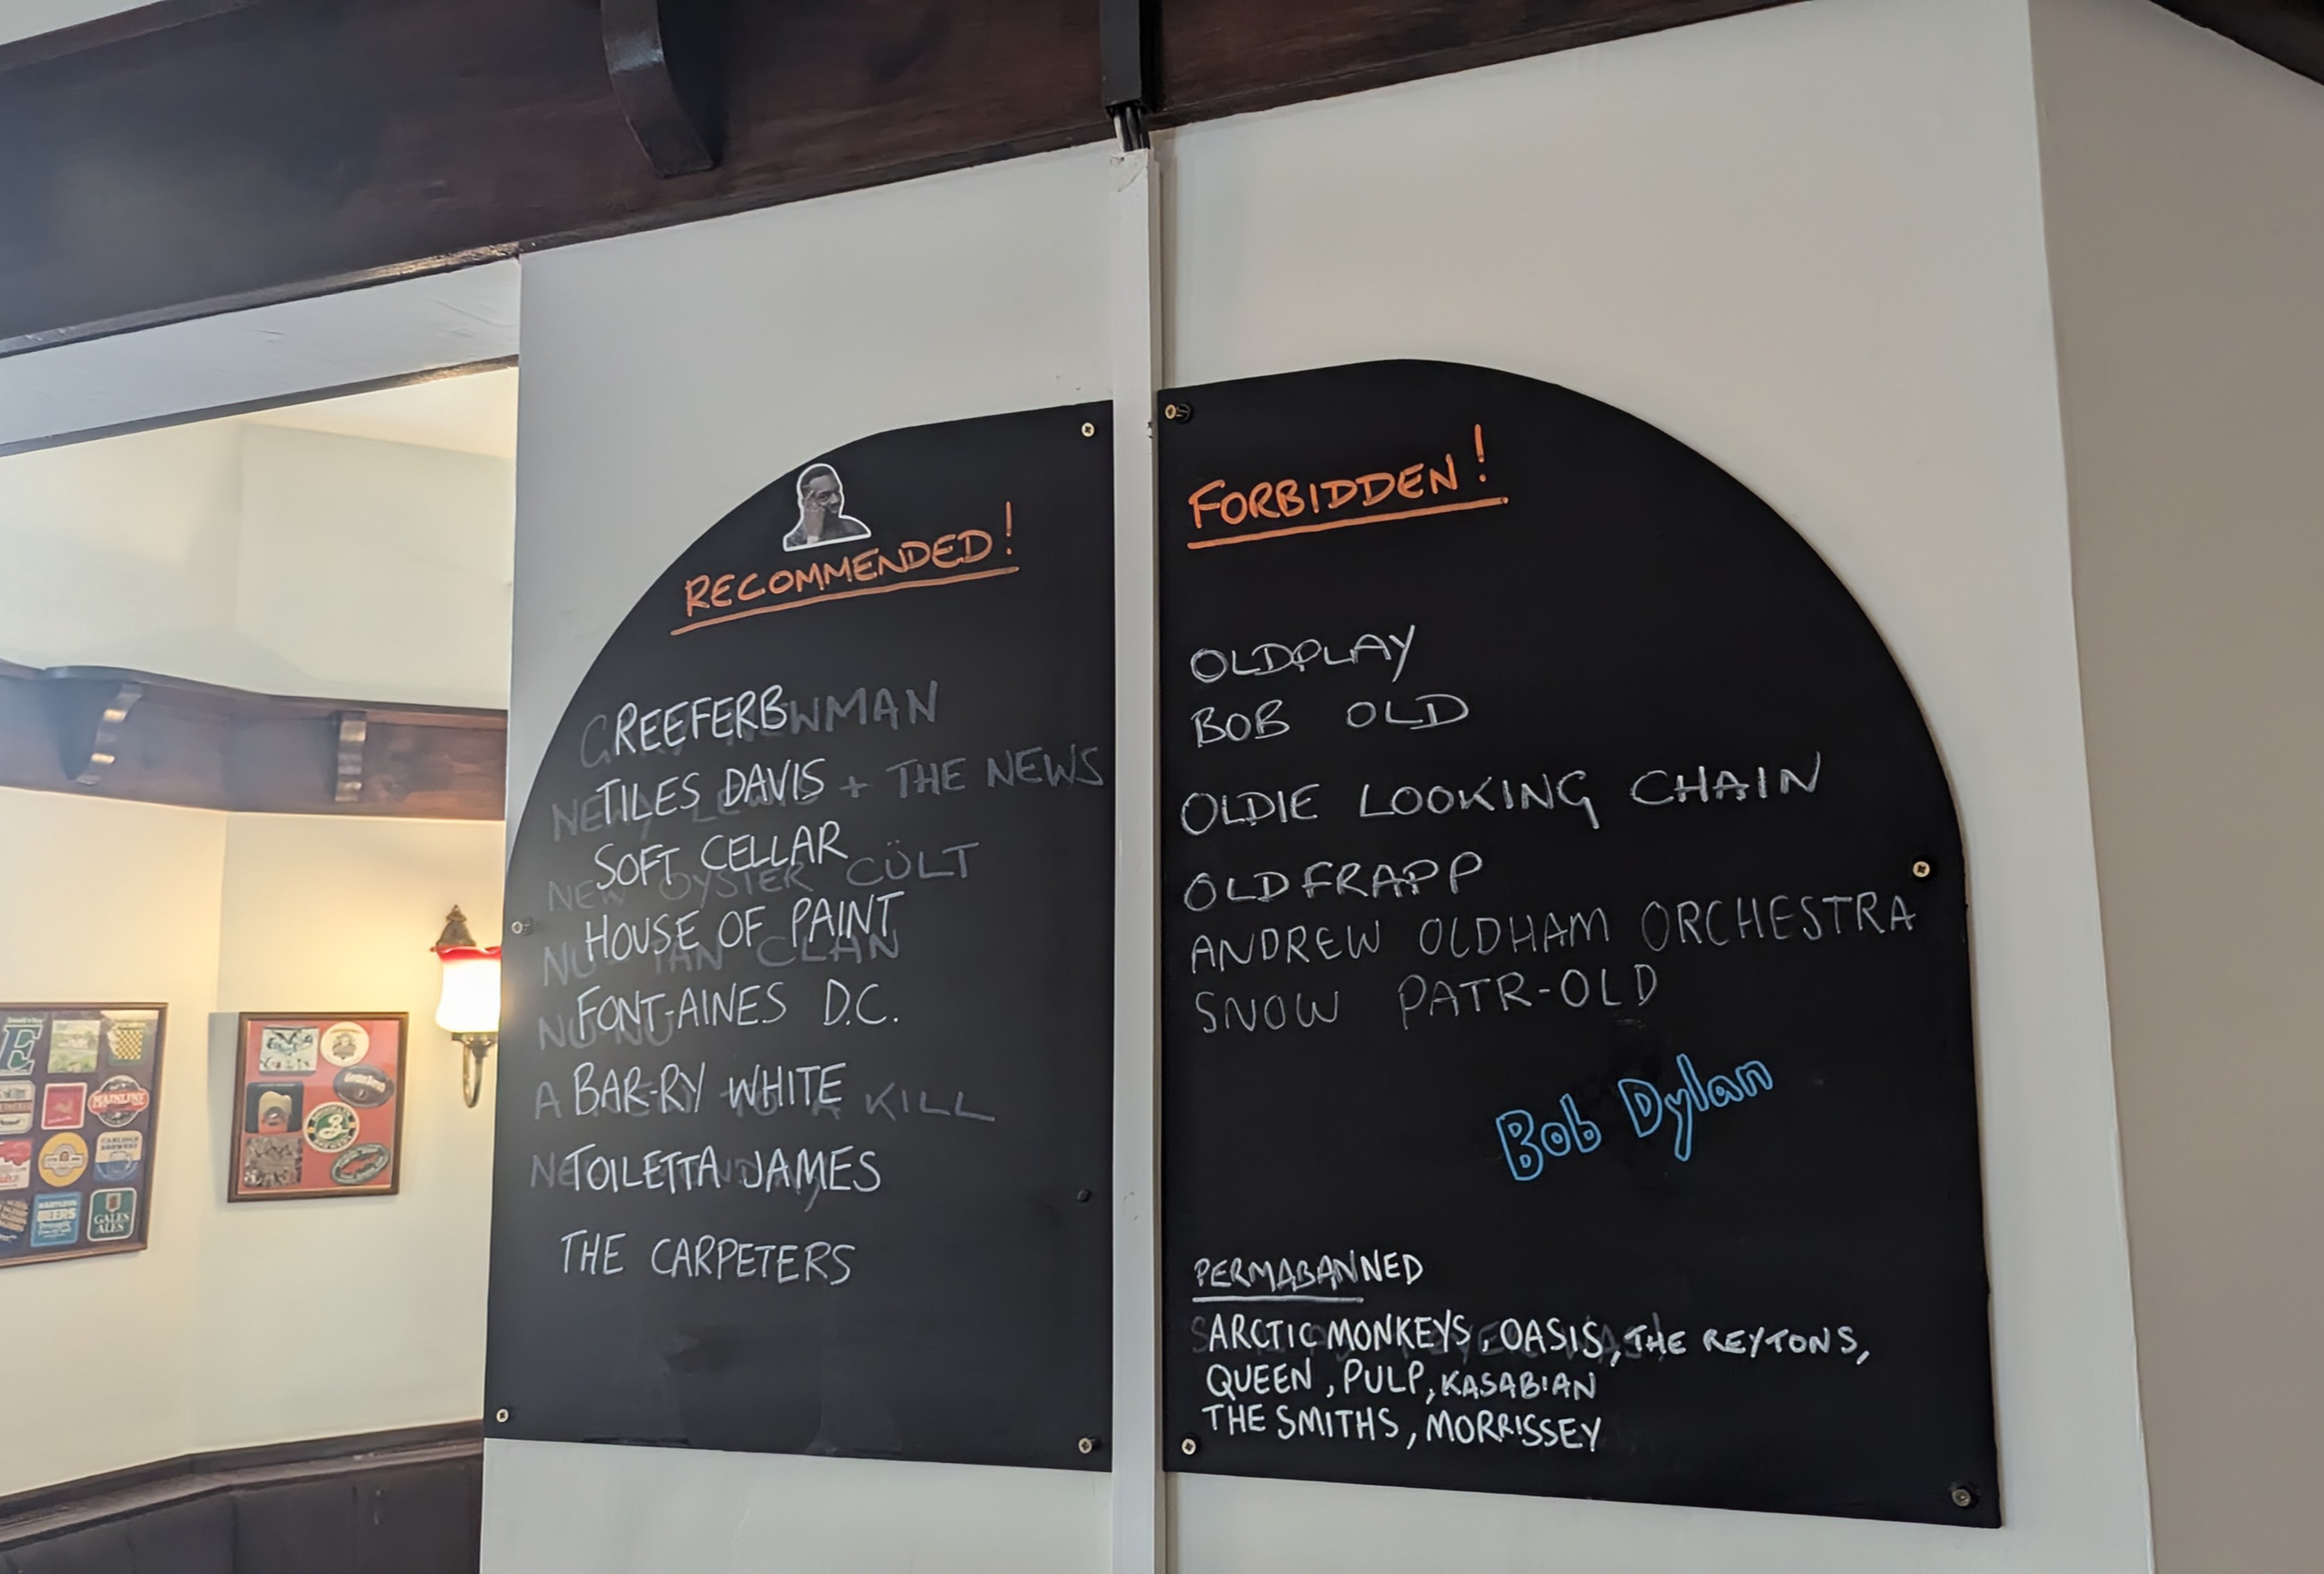 RECOMMENDED!
REEFERB
TILES DAVIS
+ THE NEWS
SOFT CELLAR
NEW OYSTER CÜLT
HOUSE OF PAINT
CLAN
FONT-AINES D.C.
BAR-RY WHITE
A KILL
TOILETTA JAMES
THE CARPETERS
FORBIDDEN!
OLDPLAY
BOB OLD
OLDIE LOOKING CHAIN
OLDFRAPP
ANDREW OLDHAM ORCHESTRA
SNOW PATR-OLD
Bob Dylan
PERMABANNED
ARCTIC MONKEYS, OASIS, THE REYTONS,
QUEEN, PULP, KASABIAN
THE SMITHS, MORRISSEY
MAINLINE
GALES
ALES